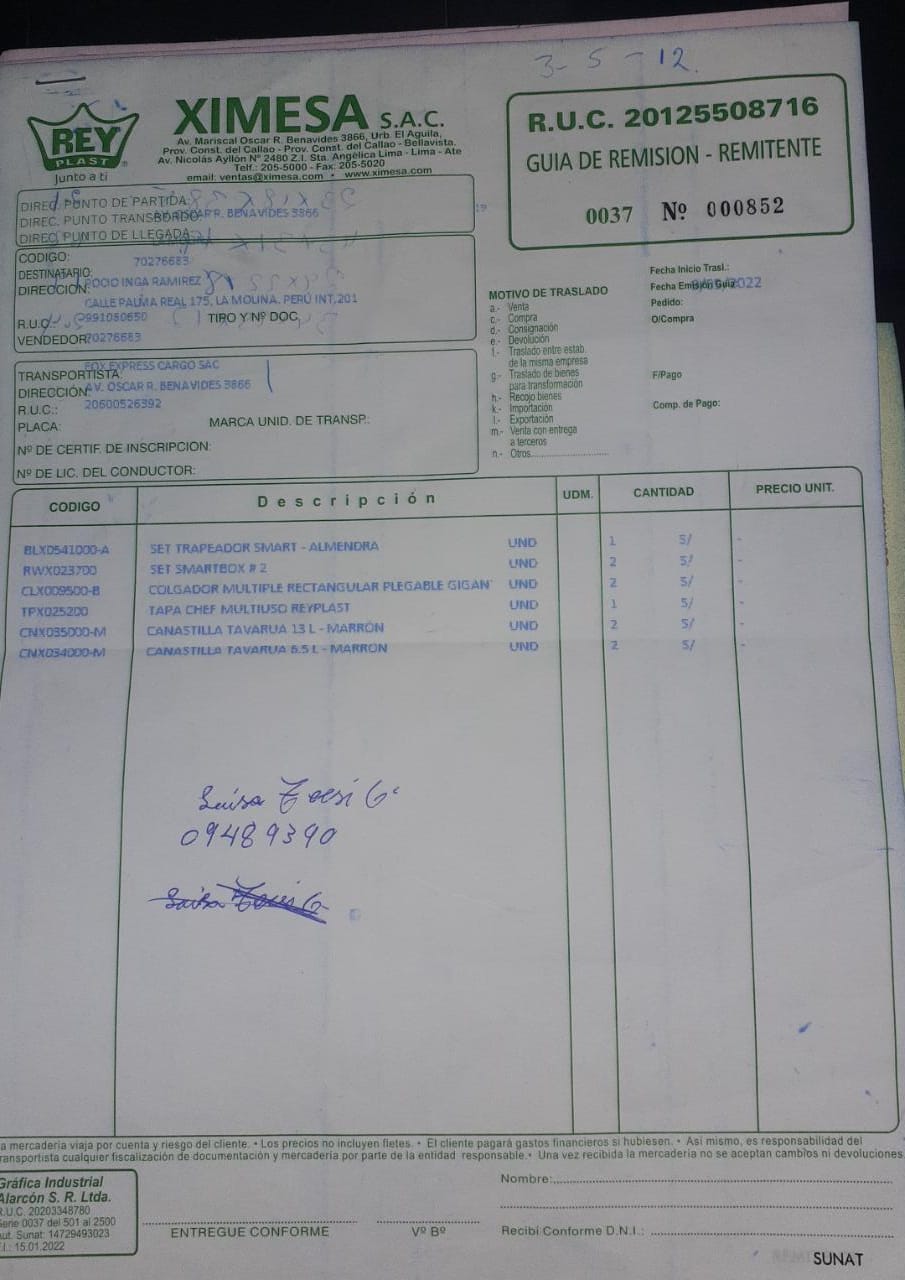 3-5-12.
REY
PLAST
Junto a ti
XIMESA S.A.C.
Av. Mariscal Oscar R. Benavides 3866, Urb. El Aguila,
Prov. Const. del Callao - Prov. Const. del Callao - Bellavista.
Av. Nicolás Ayllón Nº 2480 Z.I. Sta. Angélica Lima - Lima - Ate
Telf.: 205-5000 - Fax: 205-5020
email: ventas@ximesa.com • www.ximesa.com
R.U.C. 20125508716
GUIA DE REMISION - REMITENTE
0037 Nº 000852
DIREC. PUNTO DE PARTIDA:
DIREC. PUNTO TRANSBORDO: R. BENAVIDES 3866
DIREC. PUNTO DE LLEGADA:
CODIGO: 70276683
DESTINATARIO: ROCIO INGA RAMIREZ
DIRECCIÓN: CALLE PALMA REAL 175, LA MOLINA. PERÚ INT,201
R.U.C.: 991050650 TIRO Y Nº DOC
VENDEDOR: 70276683
TRANSPORTISTA: FOX EXPRESS CARGO SAC
DIRECCIÓN: AV. OSCAR R. BENAVIDES 3866
R.U.C.: 20600526392
PLACA: MARCA UNID. DE TRANSP.:
Nº DE CERTIF. DE INSCRIPCION:
Nº DE LIC. DEL CONDUCTOR:
MOTIVO DE TRASLADO
a.- Venta
c.- Compra
d.- Consignación
e.- Devolución
f.- Traslado entre estab.
de la misma empresa
g.- Traslado de bienes
para transformación
h.- Recojo bienes
k.- Importación
l.- Exportación
m.- Venta con entrega
a terceros
n.- Otros
Fecha Inicio Trasl.:
Fecha Emisión Guia: 2022
Pedido:
O/Compra
F/Pago
Comp. de Pago:
CODIGO Descripción UDM. CANTIDAD PRECIO UNIT.
BLX0541000-A SET TRAPEADOR SMART - ALMENDRA UND 1 S/ -
RWX023700 SET SMARTBOX # 2 UND 2 S/ -
CLX009500-B COLGADOR MULTIPLE RECTANGULAR PLEGABLE GIGAN UND 2 S/ -
TPX025200 TAPA CHEF MULTIUSO REYPLAST UND 1 S/ -
CNX035000-M CANASTILLA TAVARUA 13 L - MARRÓN UND 2 S/ -
CNX034000-M CANASTILLA TAVARUA 6.5 L - MARRÓN UND 2 S/ -
Luisa
09489390
a mercadería viaja por cuenta y riesgo del cliente. • Los precios no incluyen fletes. • El cliente pagará gastos financieros si hubiesen. • Asi mismo, es responsabilidad del
ransportista cualquier fiscalización de documentación y mercaderia por parte de la entidad responsable. • Una vez recibida la mercadería no se aceptan cambios ni devoluciones
Gráfica Industrial
Alarcón S. R. Ltda.
R.U.C. 20203348780
Serie 0037 del 501 al 2500
Aut. Sunat: 14729493023
F.I.: 15.01.2022
ENTREGUE CONFORME
Vº Bº
Nombre:
Recibi Conforme D.N.I.:
SUNAT